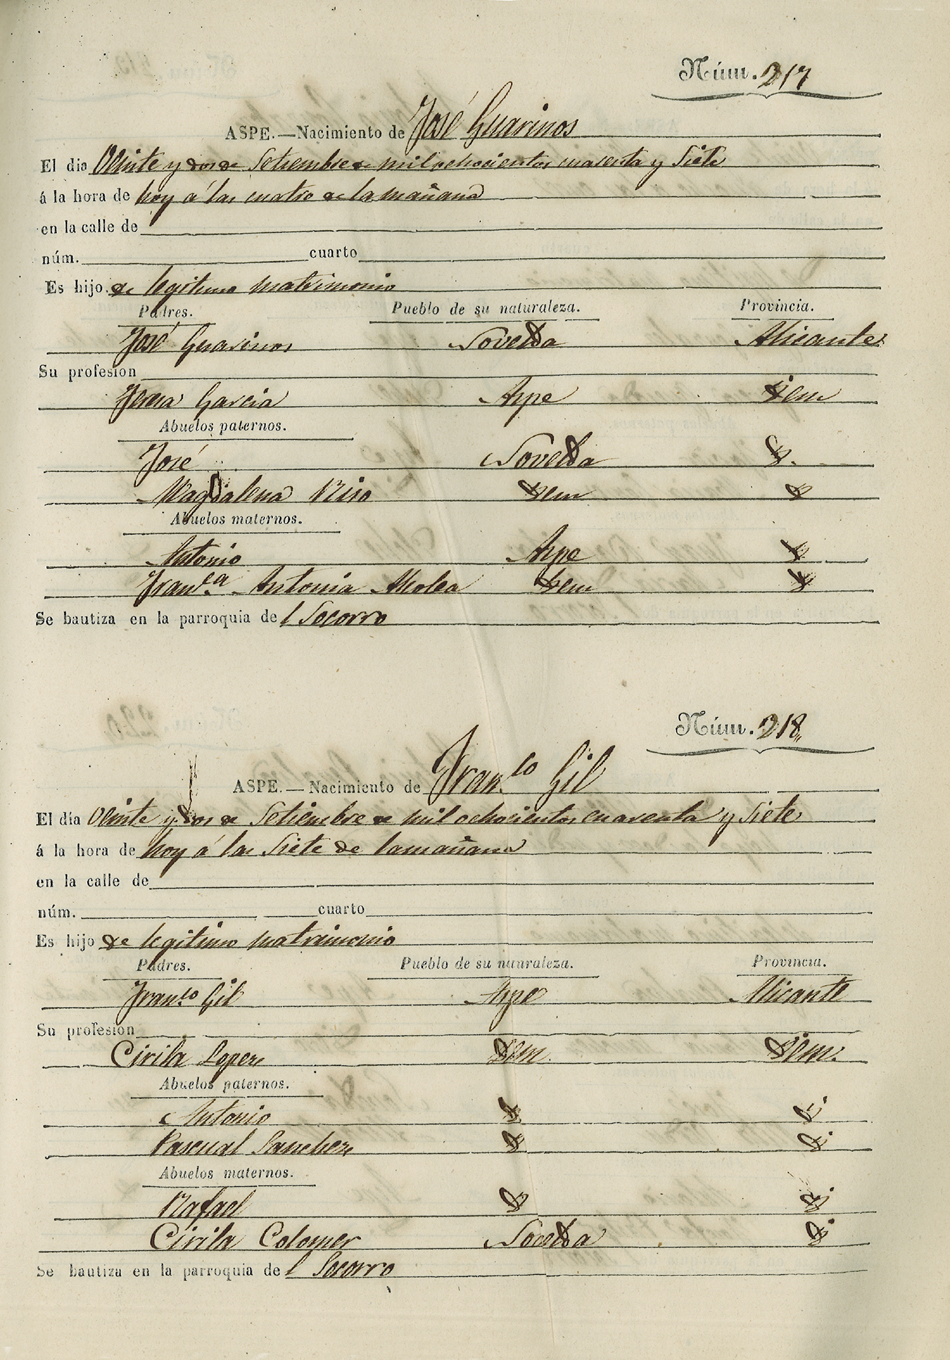 Núm. 217
ASPE.—Nacimiento de José Guarinos
El dia Veinte y dos de Setiembre de mil ochocientos cuarenta y Siete
á la hora de hoy á las cuatro de la mañana
en la calle de
núm. cuarto
Es hijo de legitimo matrimonio
Padres. Pueblo de su naturaleza. Provincia.
José Guarinos Novelda Alicante
Su profesion
Teresa Garcia Aspe Idem
Abuelos paternos.
José Novelda
Magdalena Idem
Abuelos maternos.
Antonio Aspe
Fran.ca Antonia Alcolea Idem
Se bautiza en la parroquia de l Socorro
Núm. 218
ASPE.—Nacimiento de Fran.co Gil
El dia Veinte y dos de Setiembre de mil ochocientos cuarenta y Siete
á la hora de hoy á las Siete de la mañana
en la calle de
núm. cuarto
Es hijo de legitimo matrimonio
Padres. Pueblo de su naturaleza. Provincia.
Fran.co Gil Aspe Alicante
Su profesion
Cirila Lopez Idem Idem
Abuelos paternos.
Antonio
Pascual Sanchez
Abuelos maternos.
Rafael
Cirila Colomer Novelda
Se bautiza en la parroquia de l Socorro